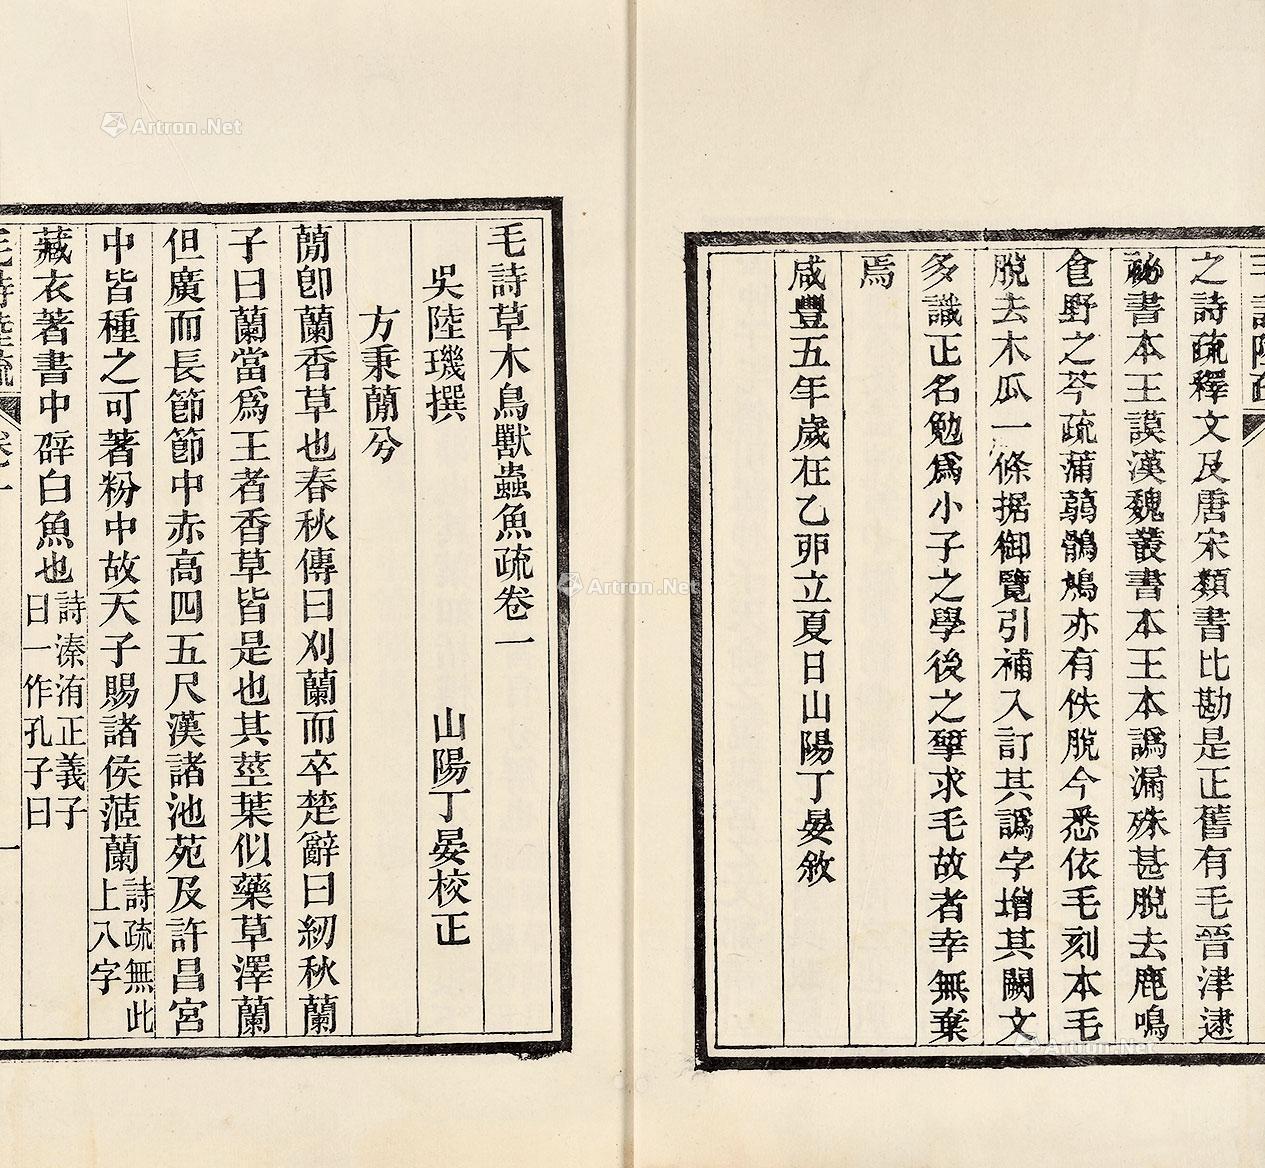 之詩疏釋文及唐宋類書比勘是正舊有毛晉津逮
祕書本王謨漢魏叢書本王本譌漏殊甚脫去鹿鳴
食野之芩疏蒲蒻鶻鳩亦有佚脫今悉依毛刻本毛
脫去木瓜一條据御覽引補入訂其譌字增其闕文
多識正名勉爲小子之學後之揅求毛故者幸無棄
焉
咸豐五年歲在乙卯立夏日山陽丁晏敘
毛詩草木鳥獸蟲魚疏卷一
吳陸璣撰 山陽丁晏校正
方秉蕑兮
蕑卽蘭香草也春秋傳曰刈蘭而卒楚辭曰紉秋蘭
子曰蘭當爲王者香草皆是也其莖葉似藥草澤蘭
但廣而長節節中赤高四五尺漢諸池苑及許昌宮
中皆種之可著粉中故天子賜諸侯茝蘭詩疏無此上八字
藏衣著書中辟白魚也詩溱洧正義子曰一作孔子曰
毛詩陸疏 卷一 一
Artron.Net
Artron.Net
Artron.Net